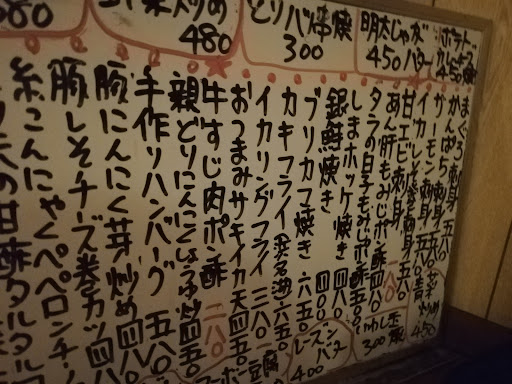 ポテト
450
明太じゃが
バター
450
とりハツ串焼
300
炒め
480
380
まぐろ刺身 五八〇
かんぱち刺身 五八〇
サーモン刺身 五五〇
イカ
甘エビ刺身 五八〇
あん肝もみじポン酢 四八〇
タラの白子もみじポン酢 五八〇
しまホッケ焼き 四八〇
銀鮭焼き 四〇〇
ブリカマ焼き 六五〇
カキフライ 六五〇
イカリングフライ 三八〇
おつまみサキイカ天 四五〇
牛すじ肉ポン酢 二八〇
親どりにんにくしょうゆ炒 四五〇
手作りハンバーグ 五八〇
豚にんにく芽炒め 四八〇
豚しそチーズ巻カツ 四八〇
糸こんにゃくペペロンチー
甘酢タルタル
青菜
炒め
450
300
レーズン
バター
400